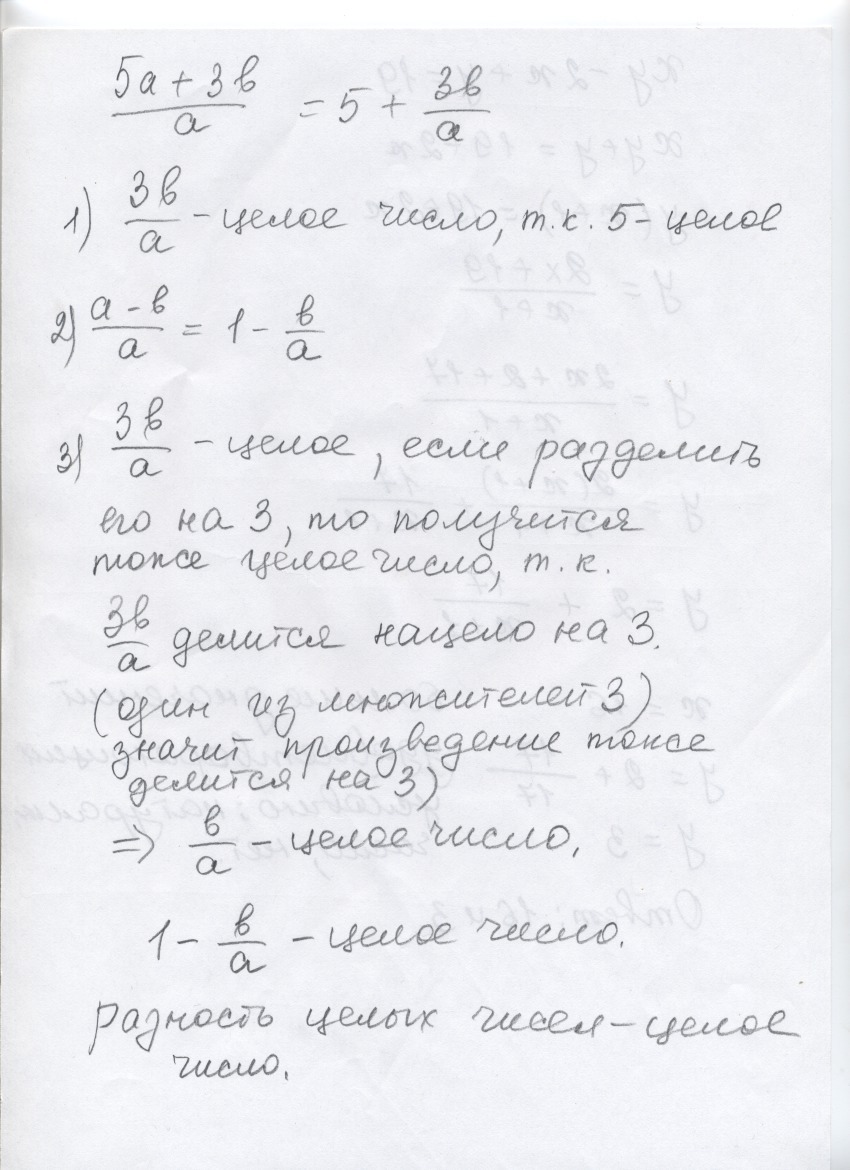 (5а + 3в)/а = 5 + 3в/а
1) 3в/а - целое число, т.к. 5 - целое
2) (а - в)/а = 1 - в/а
3) 3в/а - целое, если разделить
его на 3, то получится
тоже целое число, т.к.
3в/а делится нацело на 3.
(один из множителей 3)
значит произведение тоже
делится на 3)
=> в/а - целое число,
1 - в/а - целое число.
разность целых чисел - целое
число.